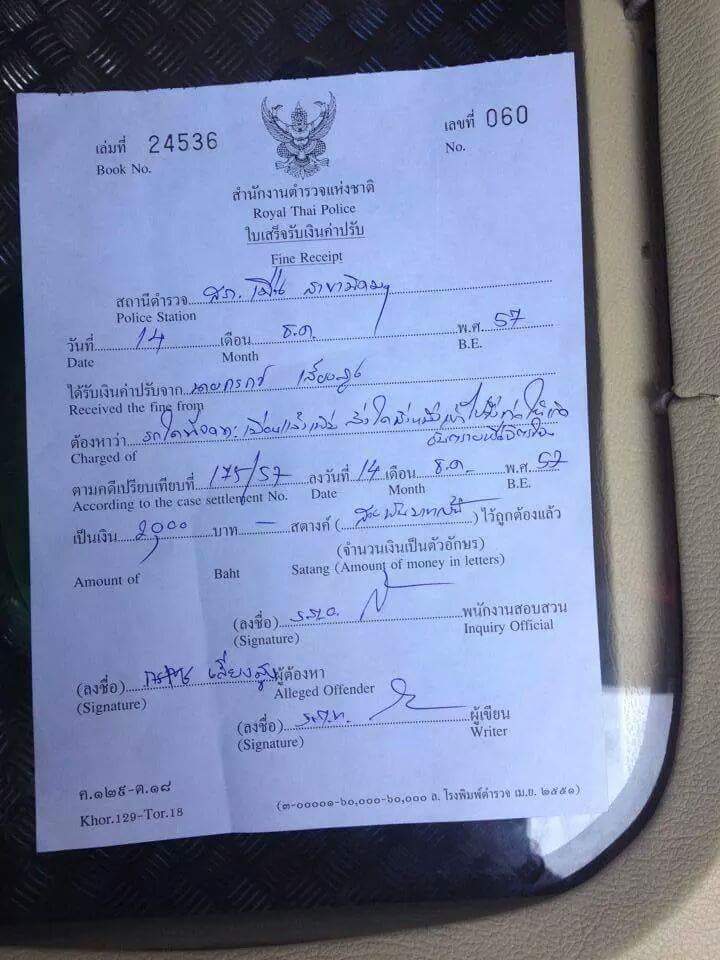 เล่มที่ 24536
Book No.
เลขที่ 060
No.
สำนักงานตำรวจแห่งชาติ
Royal Thai Police
ใบเสร็จรับเงินค่าปรับ
Fine Receipt
สถานีตำรวจ สภ. เมือง
Police Station
วันที่ 14 เดือน ธ.ค. พ.ศ. 57
Date Month B.E.
ได้รับเงินค่าปรับจาก นาย
Received the fine from
ต้องหาว่า
Charged of
ตามคดีเปรียบเทียบที่ 175/57 ลงวันที่ 14 เดือน ธ.ค. พ.ศ. 57
According to the case settlement No. Date Month B.E.
เป็นเงิน 2000 บาท - สตางค์ (สองพันบาทถ้วน) ไว้ถูกต้องแล้ว
(จำนวนเงินเป็นตัวอักษร)
Amount of Baht Satang (Amount of money in letters)
(ลงชื่อ) พนักงานสอบสวน
(Signature) Inquiry Official
(ลงชื่อ) เสี่ยงสูง ผู้ต้องหา
(Signature) Alleged Offender
(ลงชื่อ) ร.ต.ท. ผู้เขียน
(Signature) Writer
ค.๑๒๙-ต.๑๘
Khor.129-Tor.18
(๓-๐๐๐๐๑-๖๐,๐๐๐-๖๐,๐๐๐ ล. โรงพิมพ์ตำรวจ เม.ย. ๒๕๕๑)